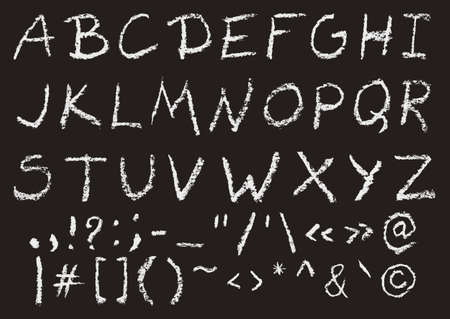 A B C D E F G H I
J K L M N O P Q R
S T U V W X Y Z
. , ! ? : ; - _ " / " \ « » @
| # [ ] ( ) ~ < > * ^ & ` ©